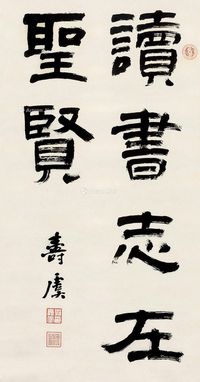 讀書志左
聖賢
壽虞